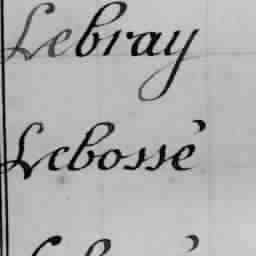 Lebray
Lebossé